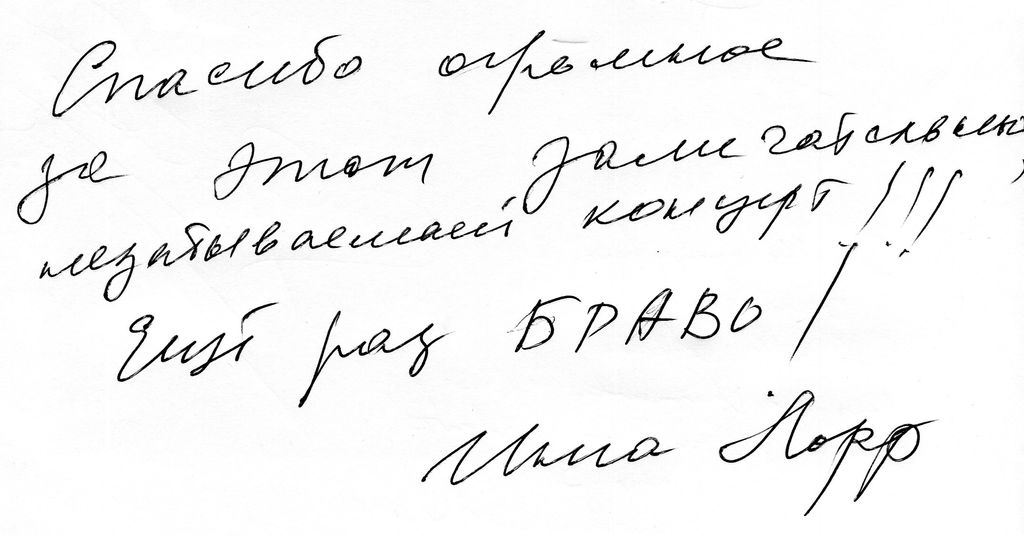 Спасибо огромное
за этот замечательный,
незабываемый концерт!!!
Ещё раз БРАВО!
Инна